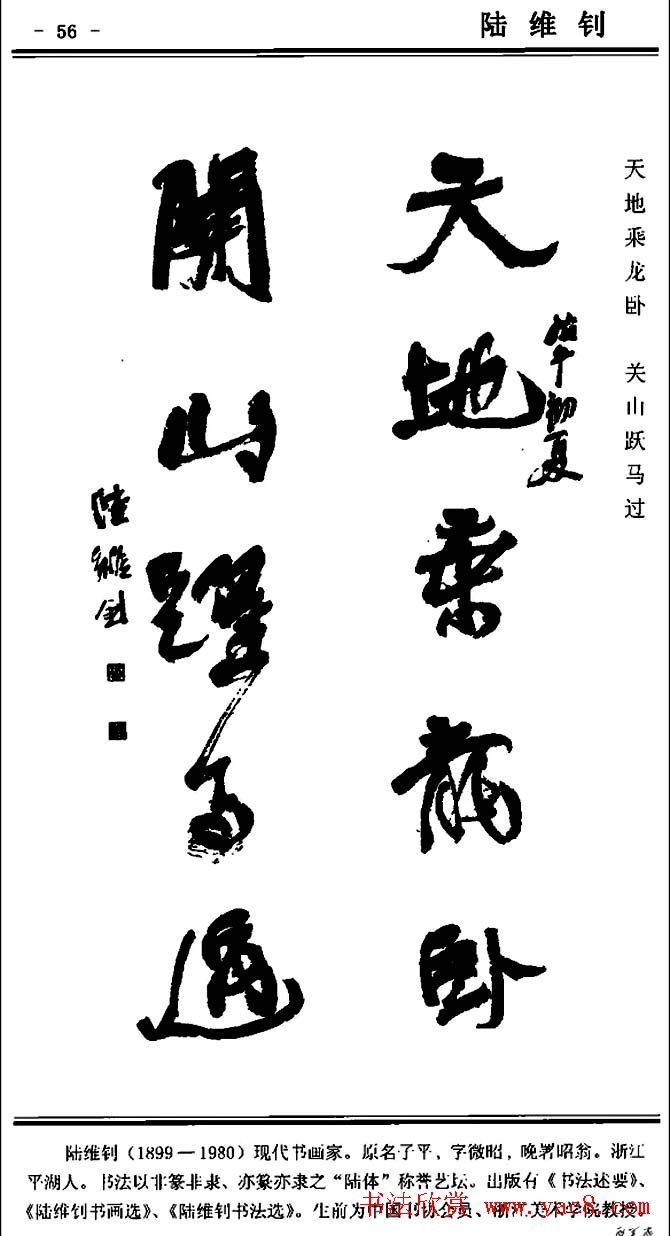 - 56 -
陆维钊
天地乘龙卧 关山跃马过
天地乘龍卧
初夏
關山躍馬過
陸維釗
陆维钊(1899—1980)现代书画家。原名子平,字微昭,晚署昭翁。浙江
平湖人。书法以非篆非隶、亦篆亦隶之“陆体”称誉艺坛。出版有《书法述要》、
《陆维钊书画选》、《陆维钊书法选》。生前为中国书协会员、浙江美术学院教授。
书法欣赏 www.yac8.com